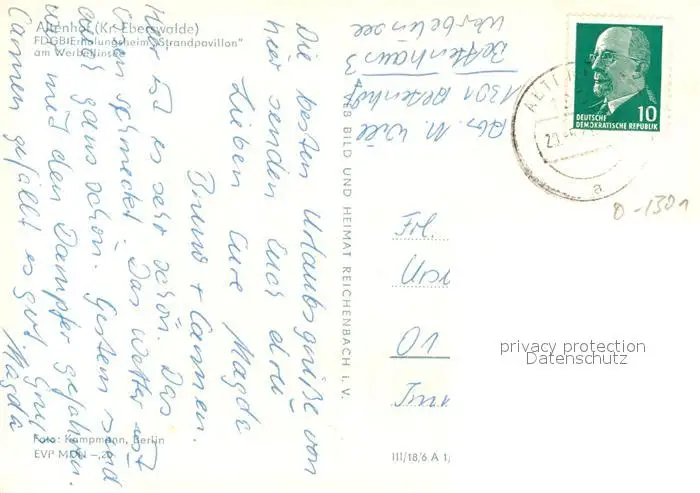 Altenhof (Kr. Eberswalde)
FDGB-Erholungsheim "Strandpavillon"
am Werbellinsee
Die besten Urlaubsgrüße von
hier senden Euch die
Lieben Eure Magda
Bruno + Carmen.
Hier ist es sehr schön. Das
Essen schmeckt. Das Wetter ist
auch ganz schön. Gestern sind
wir mit den Dampfer gefahren.
Carmen gefällt es gut. Gruß
Magda
Foto: Kampmann, Berlin
EVP MDN –,20
BILD UND HEIMAT REICHENBACH i. V.
III/18/6 A 1
Abs. M. Will
1301 Altenhof
Werbelinsee
DEUTSCHE
DEMOKRATISCHE REPUBLIK
10
ALTE
a
O-1301
Fr.
01
privacy protection
Datenschutz